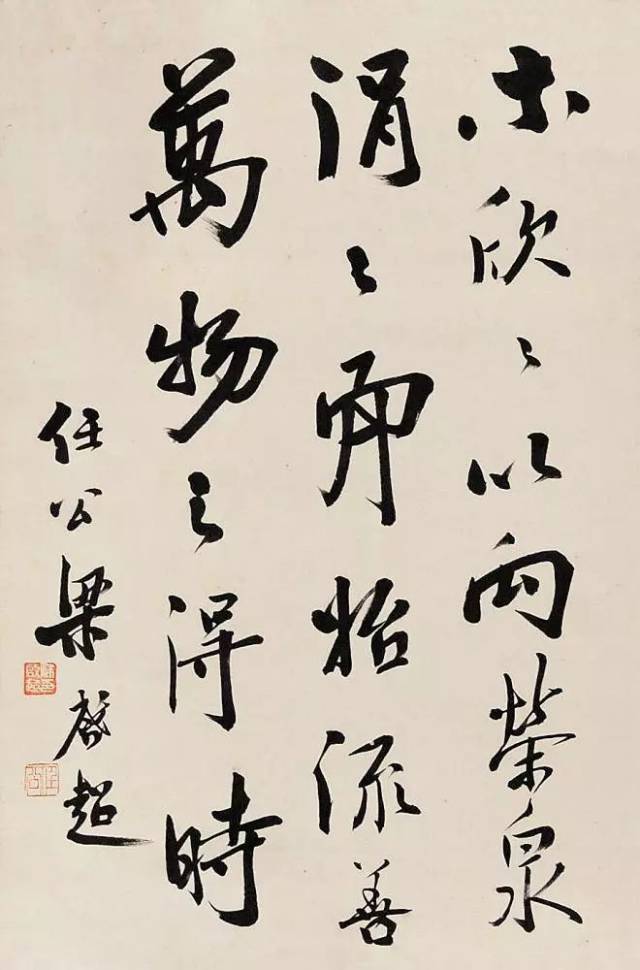 木欣々以向榮泉
涓々而始流善
萬物之得時
任公梁啓超
任公